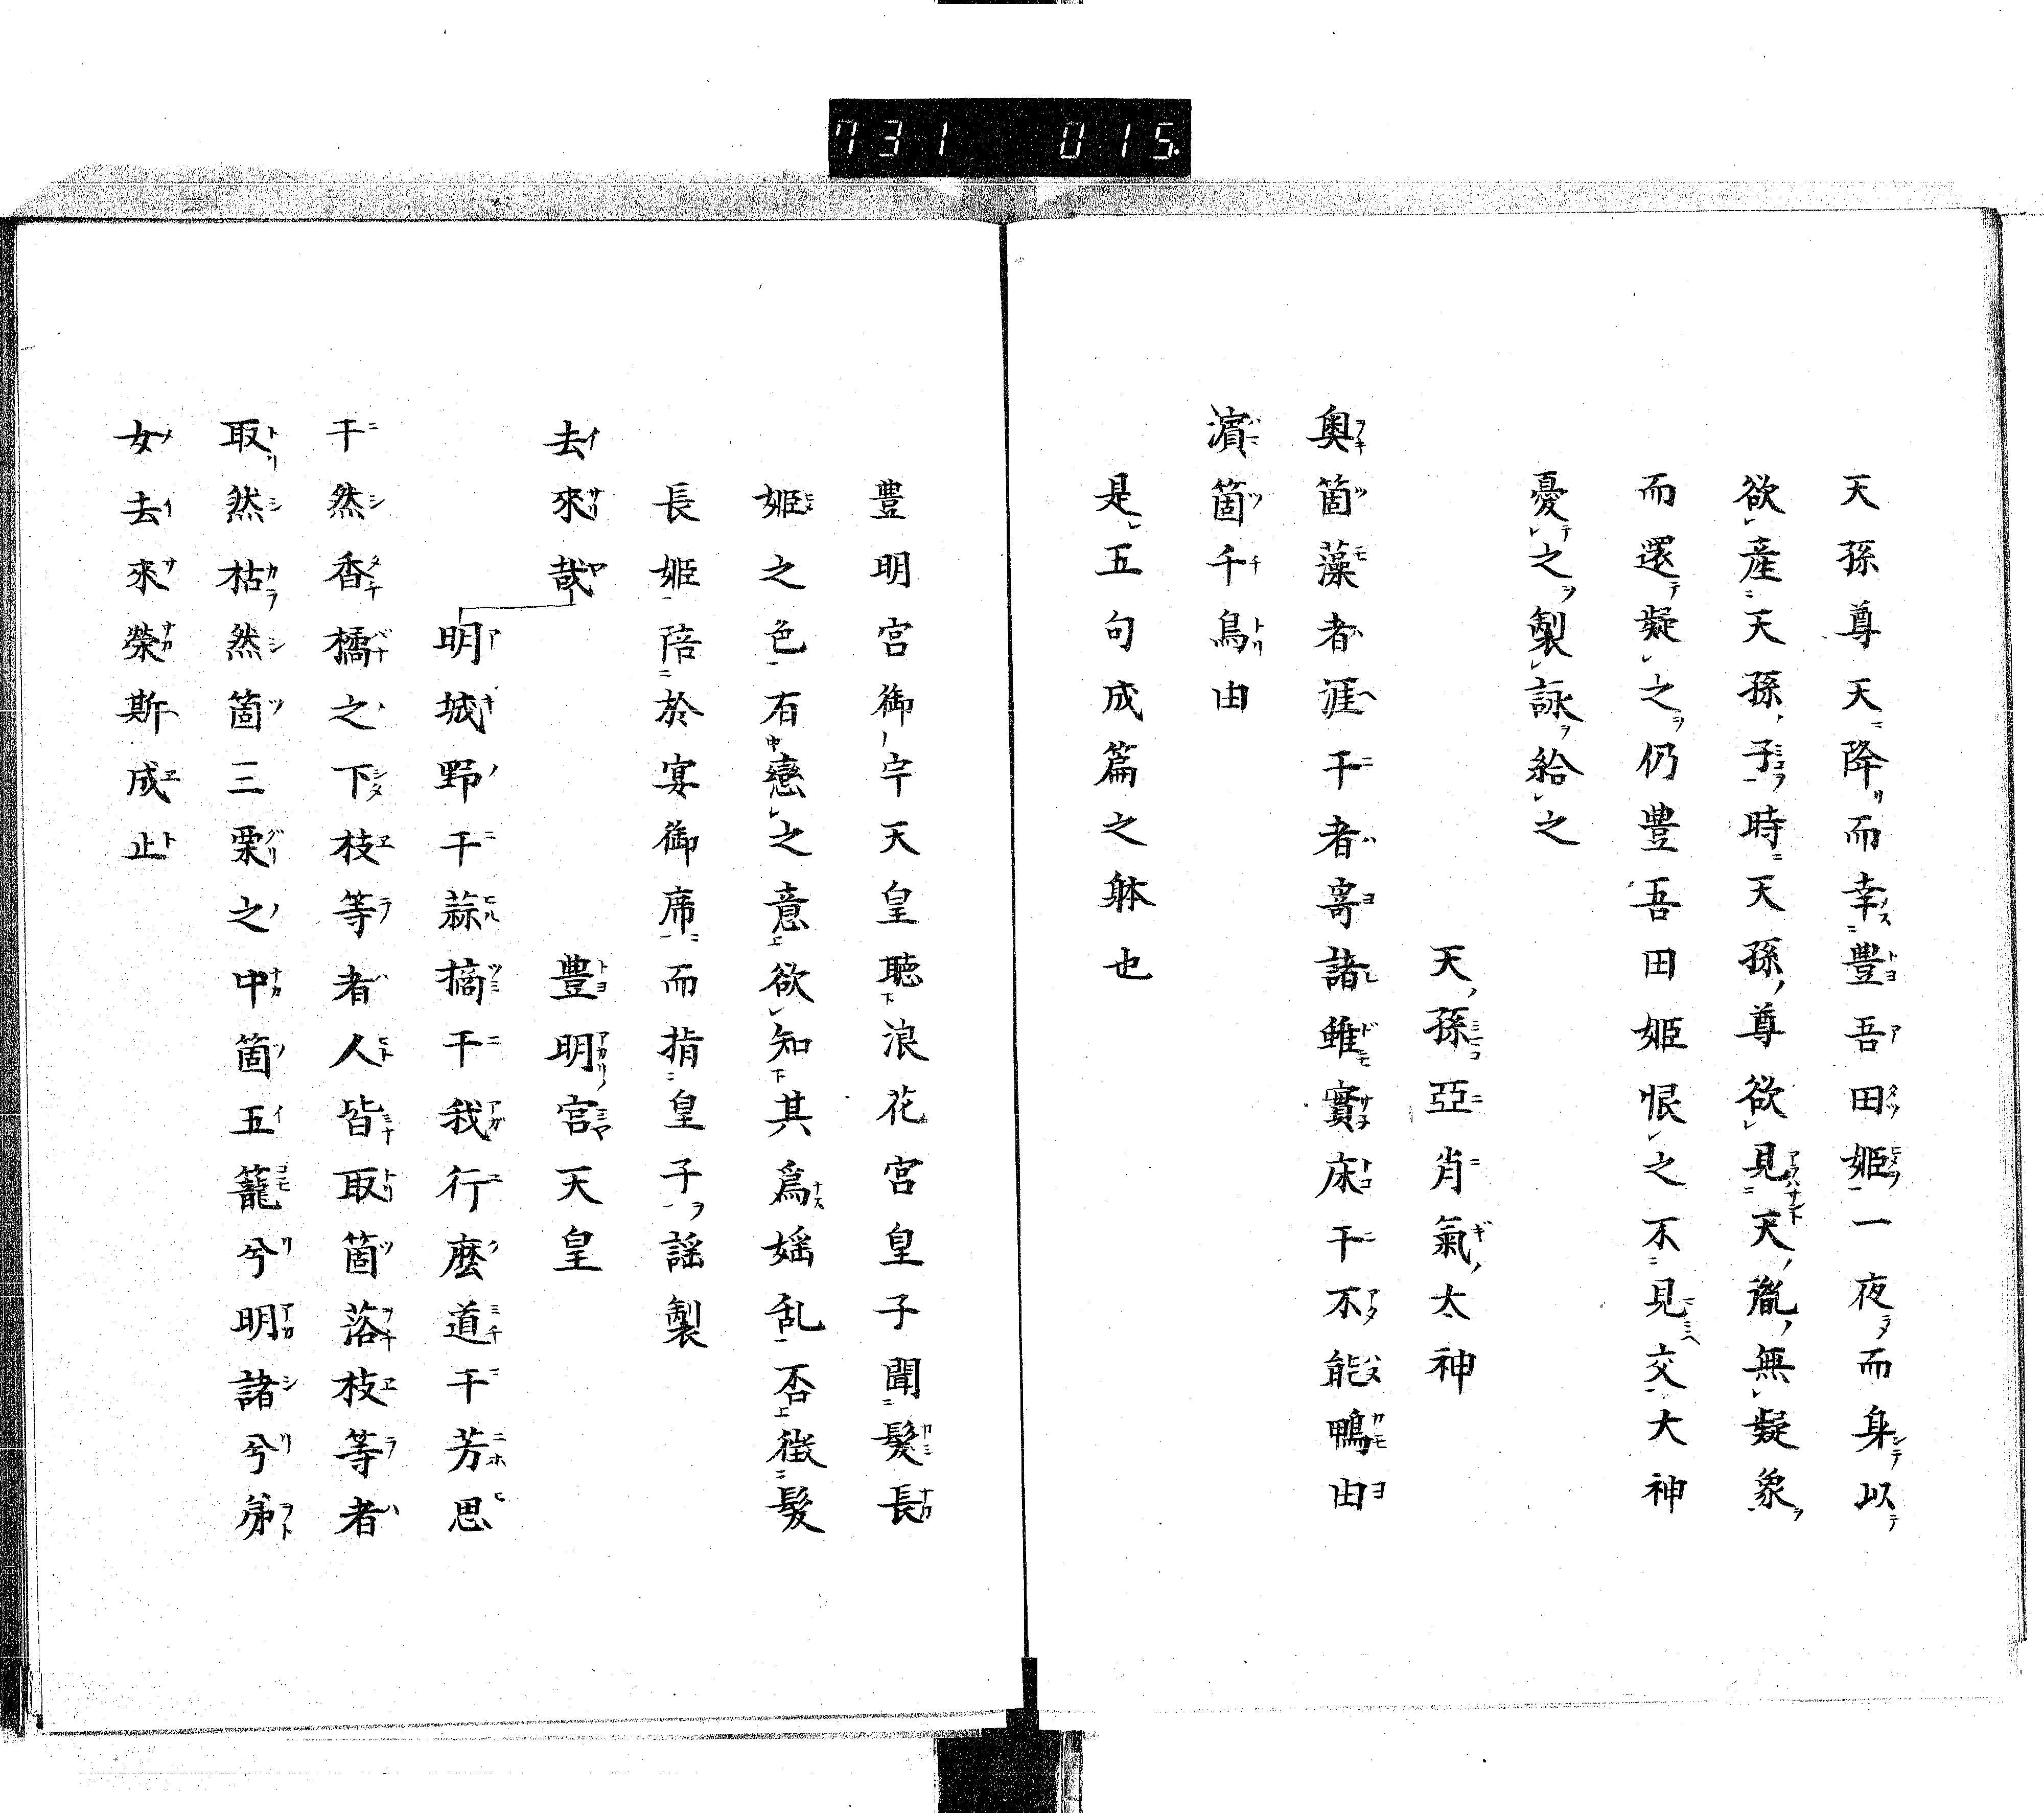 731 015.
天孫尊天降而幸豊吾田姫一夜而身以
欲産天孫子時天孫尊欲見天胤無疑象
而還疑之仍豊吾田姫恨之不見交大神
憂之製詠給之
天孫亞肖氣太神
奥箇藻者涯干者寄諸雖實床干不能鴨由
濱箇千鳥由
是五句成篇之躰也
豊明宮御宇天皇聴浪花宮皇子聞髮長
姫之色有戀之意欲知其爲婬乱否徴髮
長姫陪於宴御席而指皇子謡製
豊明宮天皇
去來哉
明城野干蒜摘干我行麽道干芳思
干然香橘之下枝等者人皆取箇落枝等者
取然枯然箇三栗之中箇五籠兮明諸兮弟
女去來榮斯成止